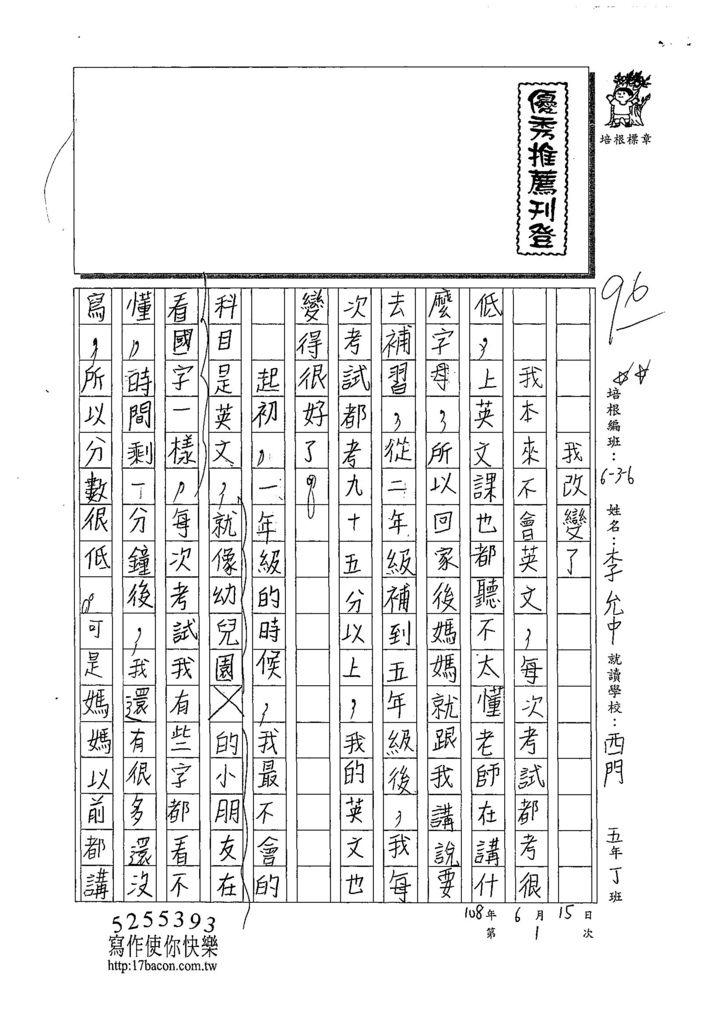 優秀推薦刊登
培根標章
96
培根編班：6-3-6 姓名：李允中 就讀學校：西門 五年丁班
108年6月15日
第1次
我改變了
我本來不會英文，每次考試都考很
低，上英文課也都聽不太懂老師在講什
麼字母，所以回家後媽媽就跟我講說要
去補習，從二年級補到五年級後，我每
次考試都考九十五分以上，我的英文也
變得很好了。
起初，一年級的時候，我最不會的
科目是英文，就像幼兒園的小朋友在
看國字一樣，每次考試我有些字都看不
懂，時間剩一分鐘後，我還有很多還沒
寫，所以分數很低。可是媽媽以前都講
5255393
寫作使你快樂
http:17bacon.com.tw